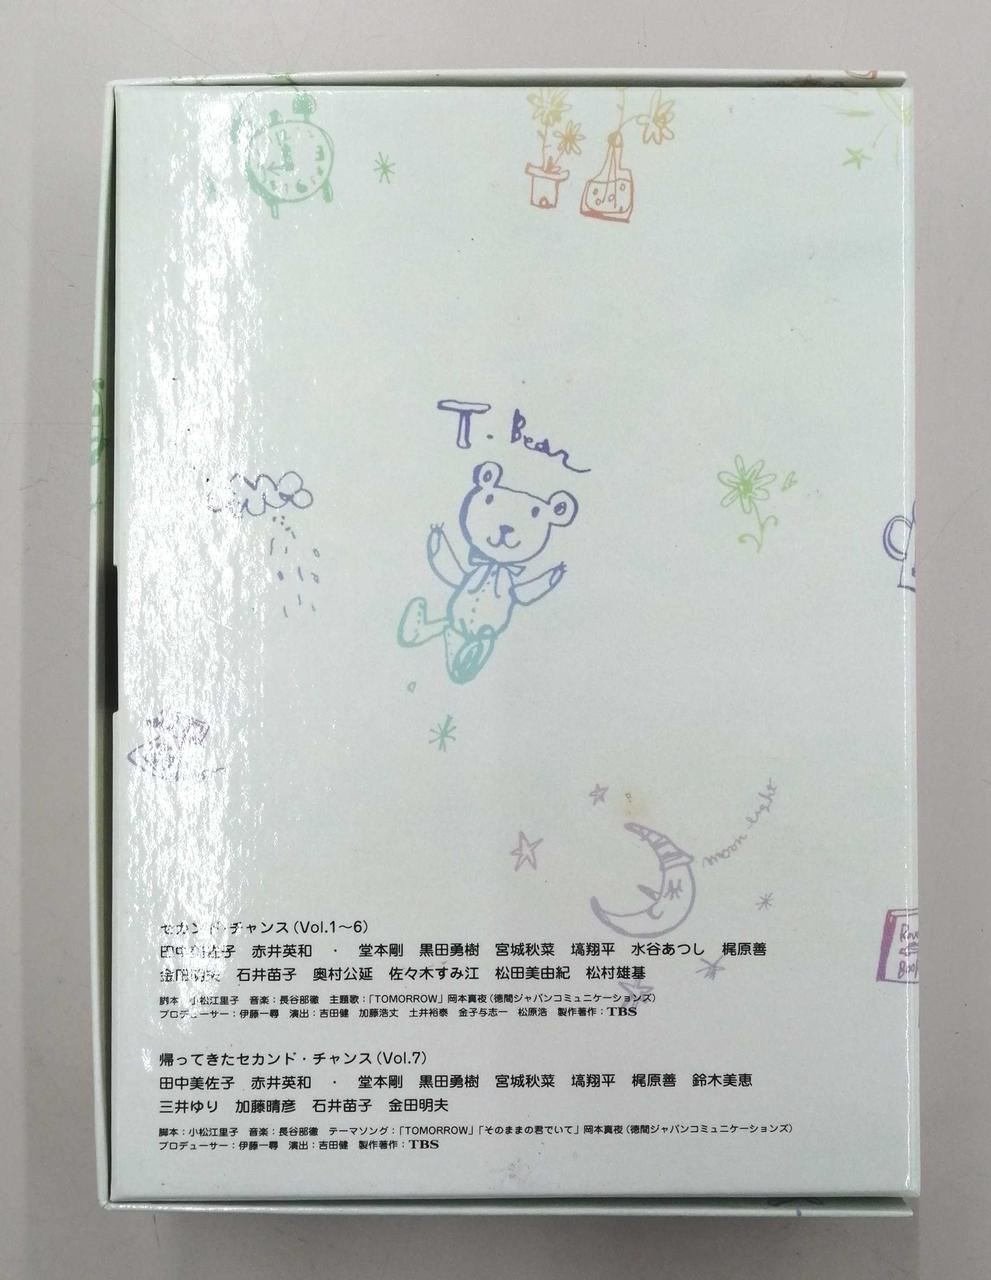 T. Bear
moon-light
セカンド・チャンス(Vol.1〜6)
田中美佐子 赤井英和 ・ 堂本剛 黒田勇樹 宮城秋菜 塙翔平 水谷あつし 梶原善
金田明夫 石井苗子 奥村公延 佐々木すみ江 松田美由紀 松村雄基
脚本:小松江里子 音楽:長谷部徹 主題歌:「TOMORROW」岡本真夜(徳間ジャパンコミュニケーションズ)
プロデューサー:伊藤一尋 演出:吉田健 加藤浩丈 土井裕泰 金子与志一 松原浩 製作著作:TBS
帰ってきたセカンド・チャンス(Vol.7)
田中美佐子 赤井英和 ・ 堂本剛 黒田勇樹 宮城秋菜 塙翔平 梶原善 鈴木美恵
三井ゆり 加藤晴彦 石井苗子 金田明夫
脚本:小松江里子 音楽:長谷部徹 テーマソング:「TOMORROW」「そのままの君でいて」岡本真夜(徳間ジャパンコミュニケーションズ)
プロデューサー:伊藤一尋 演出:吉田健 製作著作:TBS